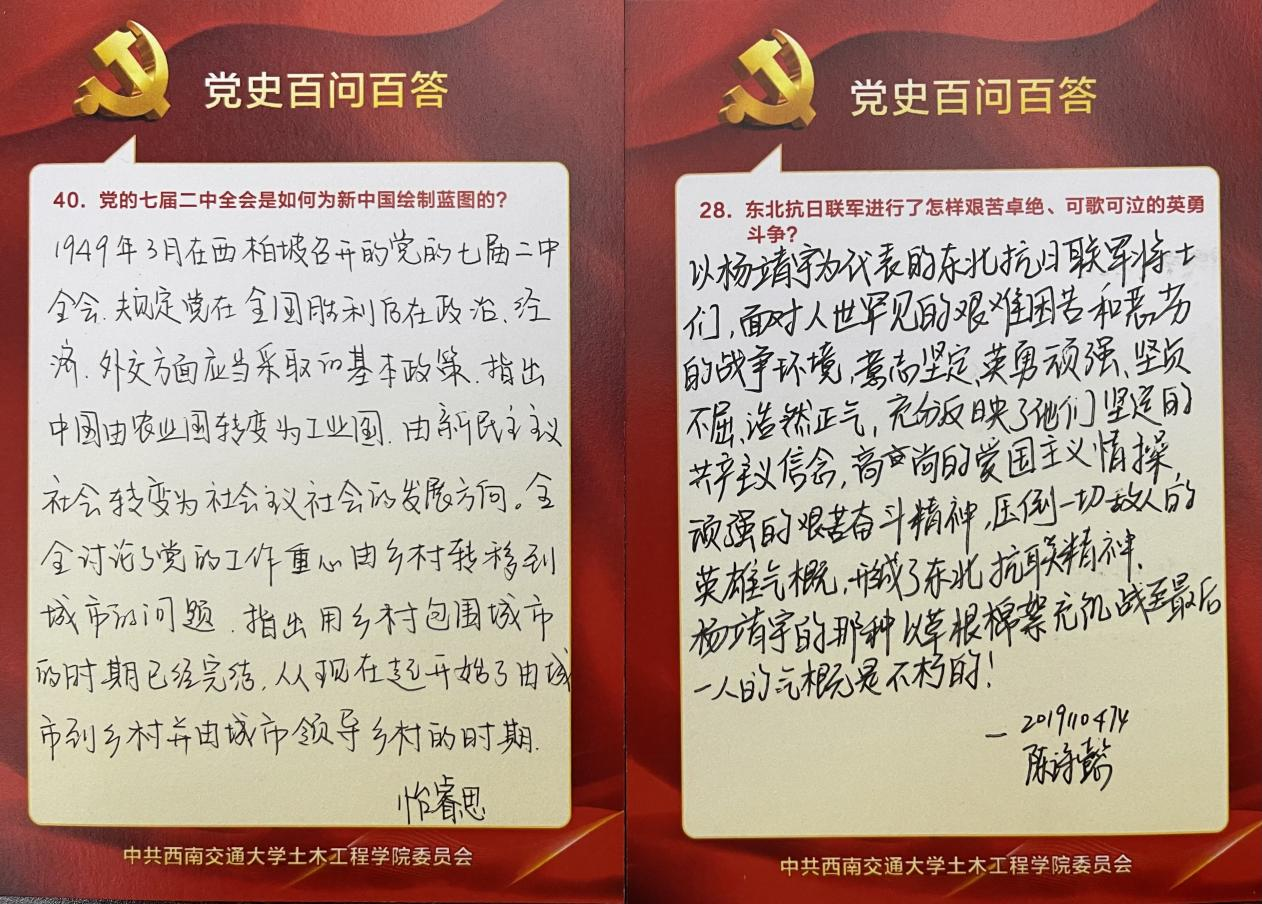 党史百问百答
40. 党的七届二中全会是如何为新中国绘制蓝图的？
1949年3月在西柏坡召开的党的七届二中
全会.规定党在全国胜利后在政治、经
济.外交方面应当采取的基本政策.指出
中国由农业国转变为工业国.由新民主主义
社会转变为社会主义社会的发展方向。全
会讨论了党的工作重心由乡村转移到
城市的问题.指出用乡村包围城市
的时期已经完结.从现在起开始了由城
市到乡村并由城市领导乡村的时期.
睿思
中共西南交通大学土木工程学院委员会
党史百问百答
28. 东北抗日联军进行了怎样艰苦卓绝、可歌可泣的英勇
斗争？
以杨靖宇为代表的东北抗日联军将士
们，面对人世罕见的艰难困苦和恶劣
的战争环境，意志坚定、英勇顽强、坚贞
不屈、浩然正气，充分反映了他们坚定的
共产主义信念，高尚的爱国主义情操，
顽强的艰苦奋斗精神，压倒一切敌人的
英雄气概，形成了东北抗联精神.
杨靖宇的那种以草根棉絮充饥战至最后
一人的气概是不朽的！
— 2019110474
陈诗懿
中共西南交通大学土木工程学院委员会